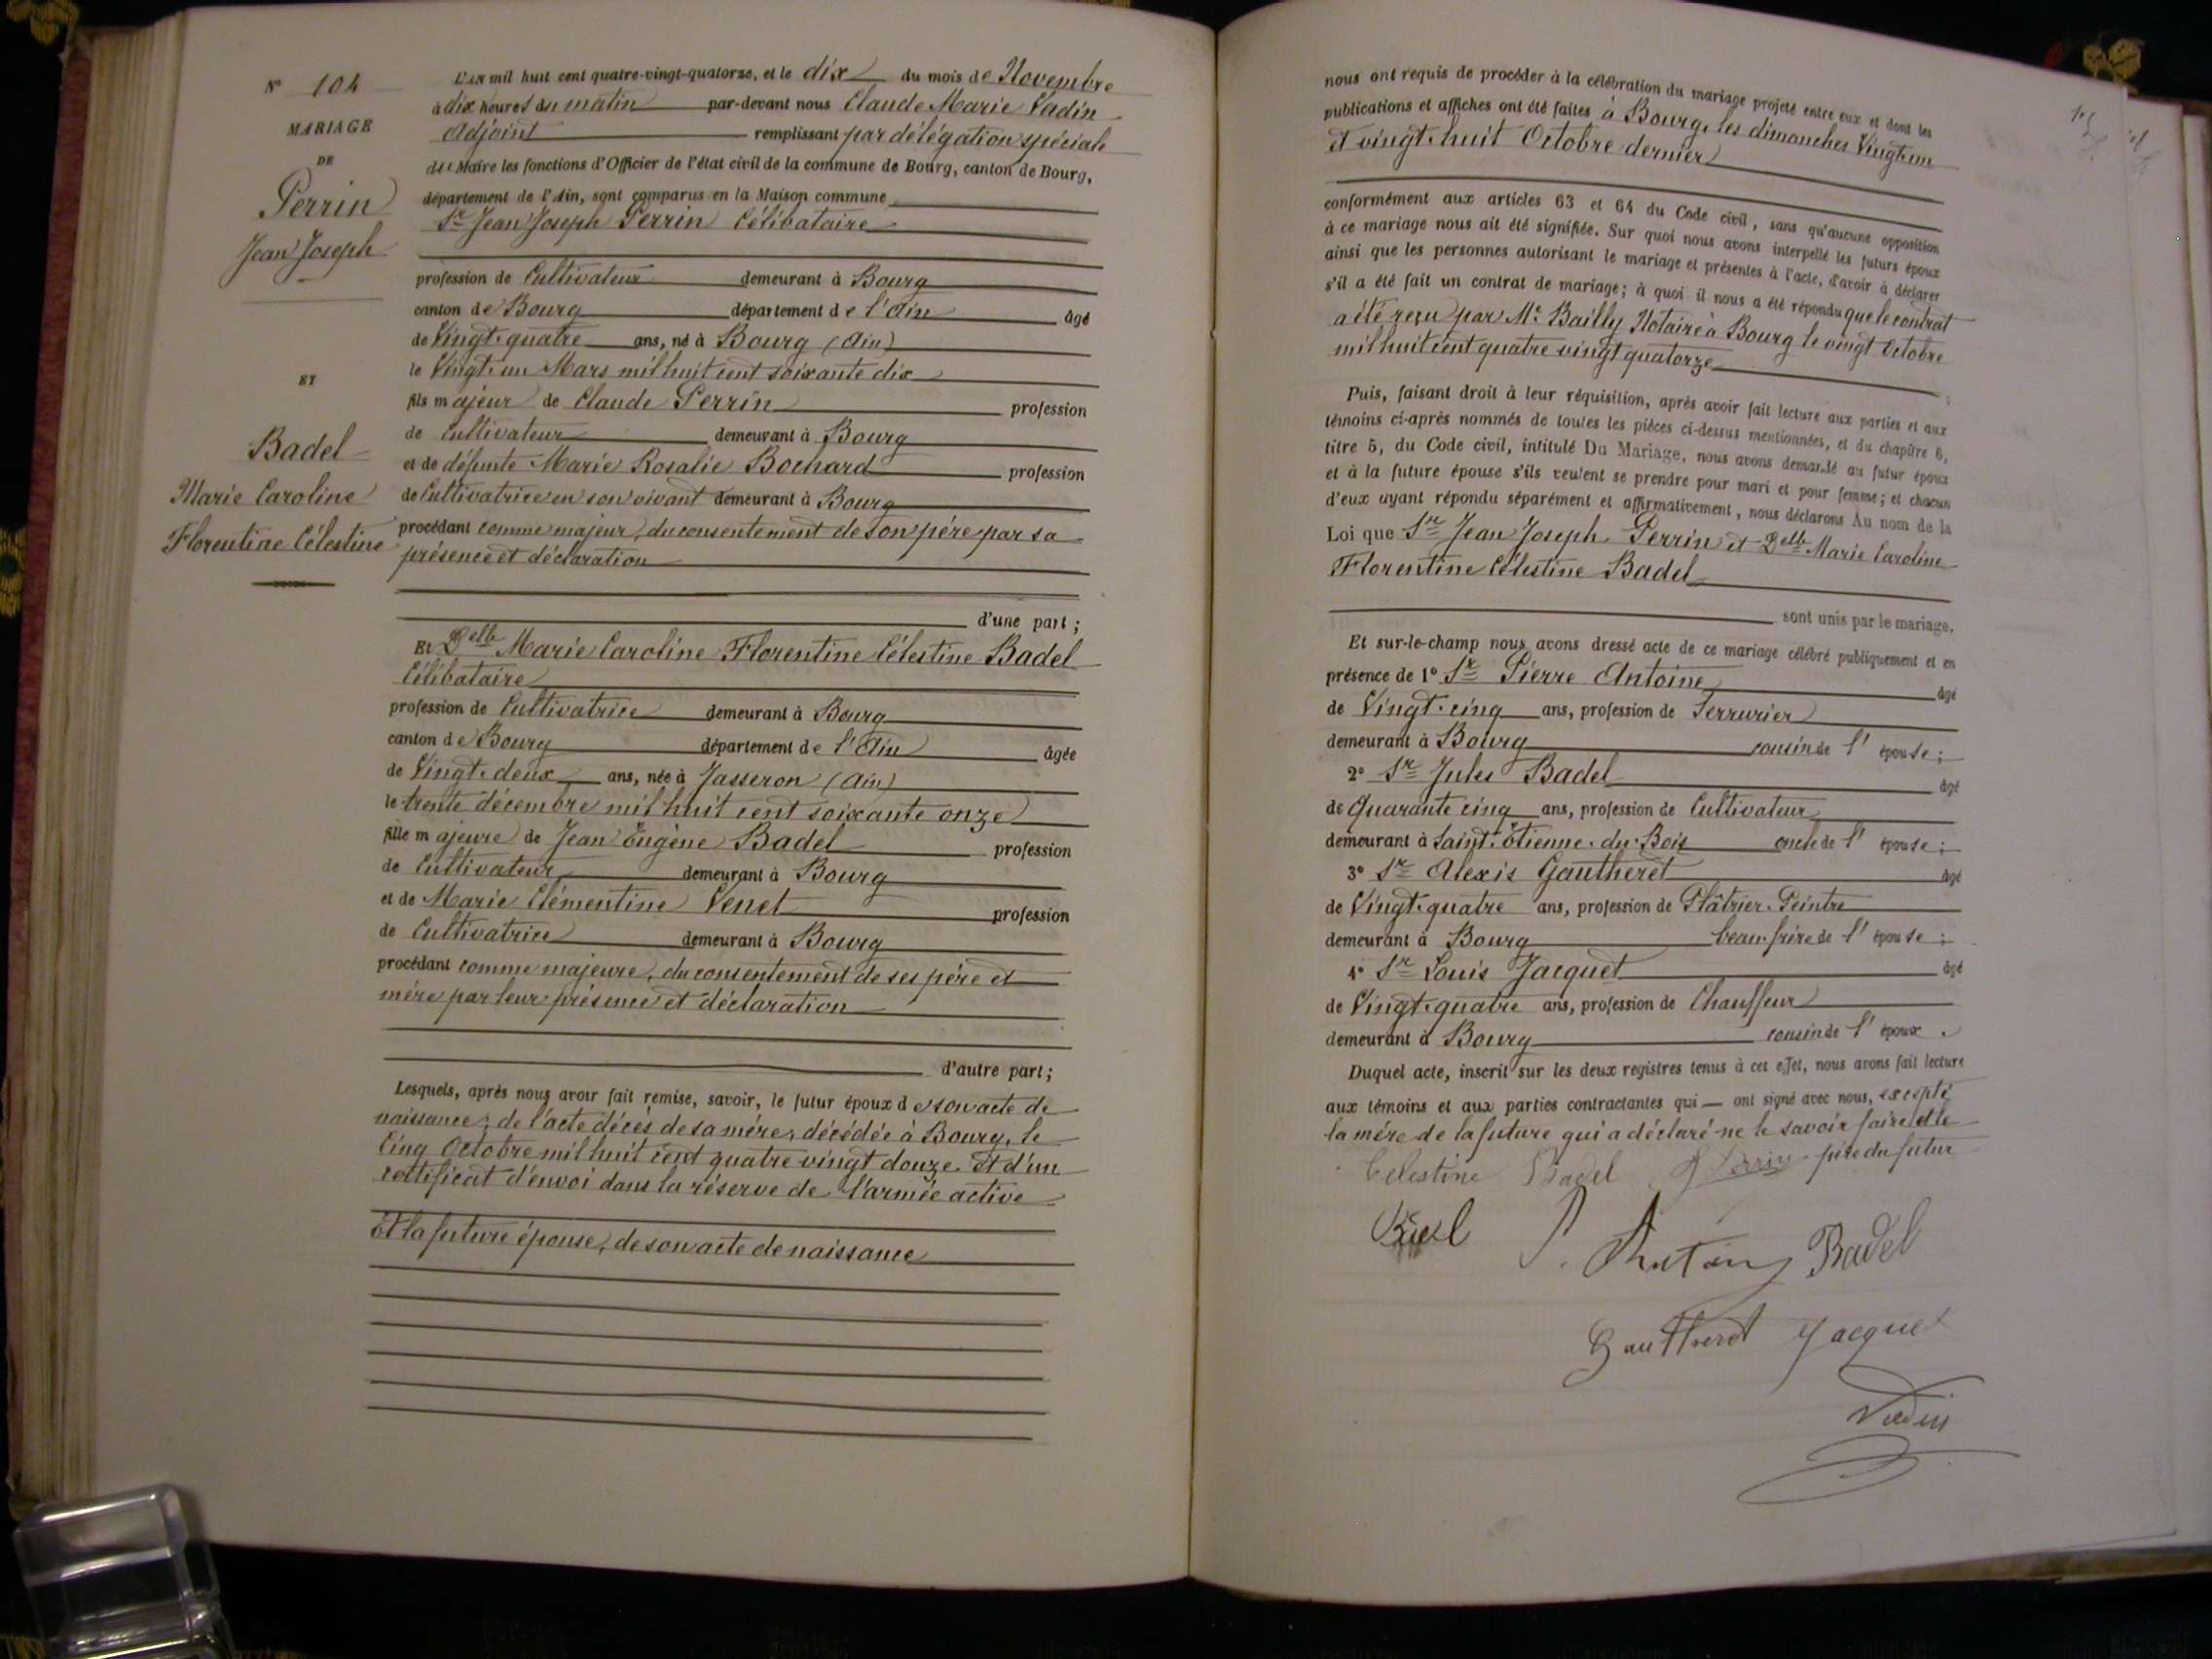 N° 104
MARIAGE
DE
Perrin
Jean Joseph
ET
Badel
Marie Caroline
Florentine Célestine
L'AN mil huit cent quatre-vingt-quatorze, et le dix du mois de Novembre
à dix heures du matin par-devant nous Claude Marie Vadin
Adjoint remplissant par délégation spéciale
du Maire les fonctions d'Officier de l'état civil de la commune de Bourg, canton de Bourg,
département de l'Ain, sont comparus en la Maison commune
Sr Jean Joseph Perrin Célibataire
profession de Cultivateur demeurant à Bourg
canton de Bourg département de l'Ain âgé
de Vingt-quatre ans, né à Bourg (Ain)
le Vingt-un Mars mil huit cent soixante dix
fils majeur de Claude Perrin profession
de Cultivateur demeurant à Bourg
et de défunte Marie Rosalie Bochard profession
de Cultivatrice en son vivant demeurant à Bourg
procédant comme majeur, du consentement de son père par sa
présence et déclaration
d'une part ;
Et Delle Marie Caroline Florentine Célestine Badel
Célibataire
profession de Cultivatrice demeurant à Bourg
canton de Bourg département de l'Ain âgée
de Vingt-deux ans, née à Jasseron (Ain)
le trente décembre mil huit cent soixante onze
fille majeure de Jean Eugène Badel profession
de Cultivateur demeurant à Bourg
et de Marie Clémentine Venet profession
de Cultivatrice demeurant à Bourg
procédant comme majeure, du consentement de ses père et
mère par leur présence et déclaration
d'autre part ;
Lesquels, après nous avoir fait remise, savoir, le futur époux de son acte de
naissance, de l'acte décès de sa mère, décédée à Bourg, le
Cinq Octobre mil huit cent quatre vingt douze. Et d'un
certificat d'envoi dans la réserve de l'armée active
Et la future épouse, de son acte de naissance
nous ont requis de procéder à la célébration du mariage projeté entre eux et dont les
publications et affiches ont été faites à Bourg, les dimanches Vingt-un
et vingt-huit Octobre dernier
conformément aux articles 63 et 64 du Code civil, sans qu'aucune opposition
à ce mariage nous ait été signifiée. Sur quoi nous avons interpellé les futurs époux
ainsi que les personnes autorisant le mariage et présentes à l'acte, d'avoir à déclarer
s'il a été fait un contrat de mariage ; à quoi il nous a été répondu que le contrat
a été reçu par Me Bailly Notaire à Bourg le vingt Octobre
mil huit cent quatre vingt quatorze
Puis, faisant droit à leur réquisition, après avoir fait lecture aux parties et aux
témoins ci-après nommés de toutes les pièces ci-dessus mentionnées, et du chapître 6,
titre 5, du Code civil, intitulé Du Mariage, nous avons demandé au futur époux
et à la future épouse s'ils veulent se prendre pour mari et pour femme ; et chacun
d'eux ayant répondu séparément et affirmativement, nous déclarons Au nom de la
Loi que Sr Jean Joseph Perrin et Delle Marie Caroline
Florentine Célestine Badel
sont unis par le mariage.
Et sur-le-champ nous avons dressé acte de ce mariage célébré publiquement et en
présence de 1° Sr Pierre Antoine âgé
de Vingt-cinq ans, profession de Serrurier
demeurant à Bourg cousin de l'épouse ;
2° Sr Jules Badel âgé
de Quarante cinq ans, profession de Cultivateur
demeurant à Saint-Étienne-du-Bois oncle de l'épouse ;
3° Sr Alexis Gautheret âgé
de Vingt-quatre ans, profession de Plâtrier-Peintre
demeurant à Bourg beau-frère de l'épouse ;
4° Sr Louis Jacquet âgé
de Vingt-quatre ans, profession de Chauffeur
demeurant à Bourg cousin de l'époux.
Duquel acte, inscrit sur les deux registres tenus à cet effet, nous avons fait lecture
aux témoins et aux parties contractantes qui — ont signé avec nous, excepté
la mère de la future qui a déclaré ne le savoir faire et le
père du futur
Celestine Badel J Perrin
Badel P. Antoine Badel
Gautheret Jacquet
Vadin